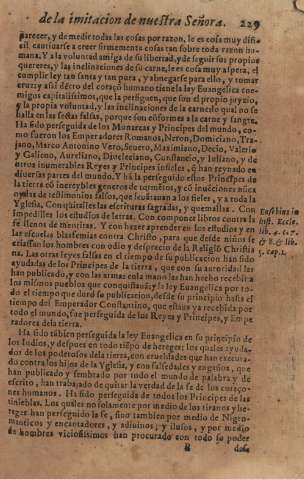 de la imitacion de nuestra Señora. 229
parecer, y de medir todas las cosas por razon, le es cosa muy difi-
cil cautiuarse a creer firmemente cosas tan sobre toda razon hu-
mana. Y a la voluntad amiga de su libertad, y de seguir sus propios
quereres, y las inclinaciones de su carne, le es cosa muy aspera, el
cumplir ley tan santa y tan pura, y abnegarse para ello, y tomar
cruz: y assi détro del coraçõ humano tiene la ley Euangelica ene-
migos capitalissimos, que la persiguen, que son el propio juyzio,
y la propia voluntad, y las inclinaciones de la carne: lo qual no se
halla en las sectas falsas, porque son cõformes a la carne y sangre.
Ha sido perseguida de los Monarcas y Principes del mundo, co-
mo fueron los Emperadores Romanos, Neron, Domiciano, Tra-
jano, Marco Antonino Vero, Seuero, Maximiano, Decio, Valerio
y Galieno, Aureliano, Diocleciano, Constancio, y Iuliano, y de
otros innumerables Reyes y Principes infieles, q̃ han reynado en
diuersas partes del mundo. Y há la perseguido estos Principes de
la tierra cõ increybles generos de tormẽtos, y cõ inuẽciones nũca
oydas de testimonios falsos, que leuãtauan a los fieles, y a toda la
Yglesia, Con quitarles las escrituras sagradas, y quemallas. Con
impedilles los estudios de letras. Con componer libros contra la
fe llenos de mentiras. Y con hazer aprender en los estudios y en
las escuelas blasfemias contra Christo, para que desde niños se
criassen los hombres con odio y desprecio de la Religiõ Christia-
na. Las otras leyes falsas en el tiempo de su publicacion han sido
ayudadas de los Principes de la tierra, que con su autoridad las
han publicado, y con las armas en la mano las han hecho recebir a
los mismos pueblos que conquistauã; y la ley Euangelica por to-
do el tiempo que duró su publicacion, desde su principio hasta el
tiempo del Emperador Constantino, que estaua ya recebida por
todo el mundo, fue perseguida de los Reyes y Principes, y Empe-
radores dela tierra.
Ha sido tãbien perseguida la ley Euangelica en su principio de
los Iudios, y despues en todo tiẽpo de hereges: los quales ayuda-
dos de los poderosos dela tierra, con crueldades que han executa-
do contra los hijos de la Yglesia, y con falsedades y engaños, que
han publicado y sembrado por todo el mundo de palabra y de
escrito, han trabajado de quitar la verdad de la fè de los coraço-
nes humanos. Ha sido perseguida de todos los Principes de las
tinieblas. Los quales no solamente por medio de los tiranos y he-
reges han perseguido la fe, sino tambien por medio de Nigro-
manticos y encantadores, y adiuinos; y ilusos, y por medio
de hombres viciosissimos han procurado con todo su poder
Eusebius in
hist. Eccle.
lib. 4. c. 7.
& 8. & lib.
5. cap. 1.